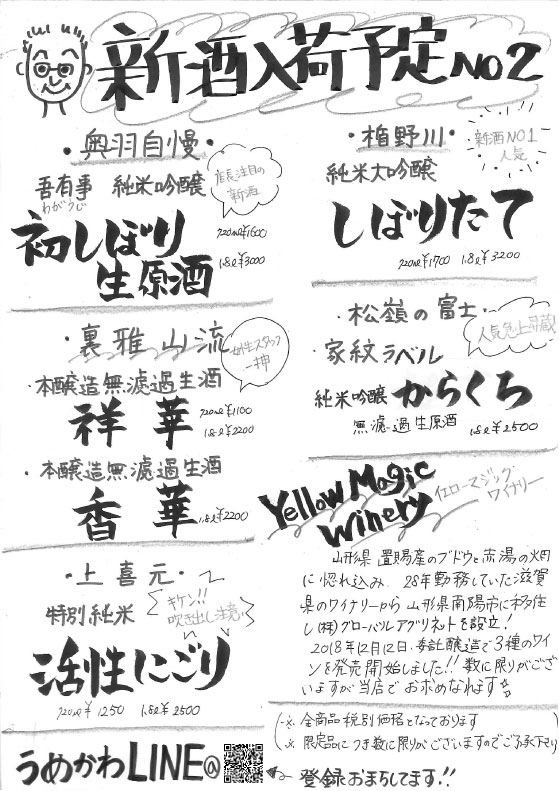 新酒入荷予定 NO2
・奥羽自慢・
吾有事 純米吟醸
わがうじ
店長注目の
新酒
初しぼり
生原酒
720ml ¥1600
1.8l ¥3000
・裏雅山流
女性スタッフ
一押
・本醸造無濾過生酒
祥華
720ml ¥1100
1.8l ¥2200
・本醸造無濾過生酒
香華
1.8l ¥2200
・上喜元・
特別純米
キケン!!
吹き出し注意
活性にごり
720ml ¥1250 1.8l ¥2500
うめかわLINE@
・楯野川・
新酒NO1
人気
純米大吟醸
しぼりたて
720ml ¥1700 1.8l ¥3200
・松嶺の富士
人気急上昇蔵!
・家紋ラベル
純米吟醸 からくち
無濾過生原酒 1.8l ¥2500
Yellow Magic
Winery
イエローマジック
ワイナリー
山形県 置賜産のブドウと赤湯の畑
に惚れ込み、28年勤務していた滋賀
県のワイナリーから山形県南陽市に移住
し(株)グローバルアグリネットを設立!
2018年12月12日 委託醸造で3種のワイ
ンを発売開始しました!!数に限りがござ
いますが当店でお求めなれます
※ 全商品税別価格となっております
※ 限定品につき数に限りがございますのでご了承下さい
登録おまちしてます!!